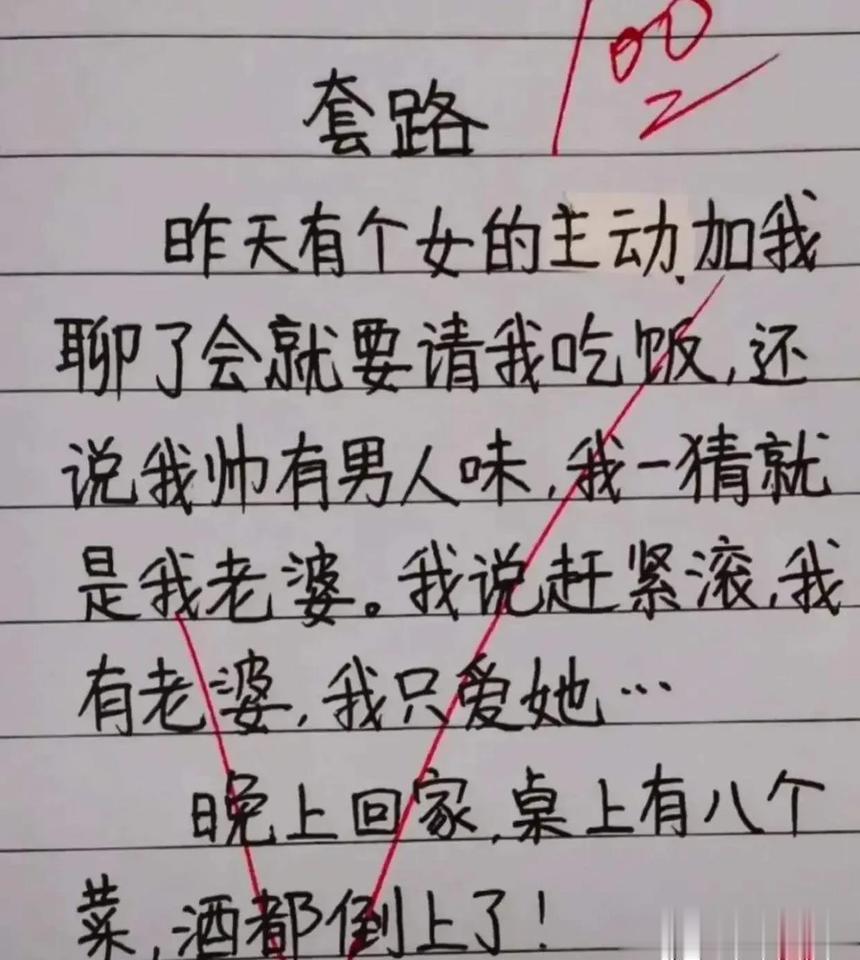 100
套路
昨天有个女的主动.加我
聊了会就要请我吃饭,还
说我帅有男人味,我一猜就
是我老婆。我说赶紧滚,我
有老婆,我只爱她…
晚上回家,桌上有八个
菜,酒都倒上了!